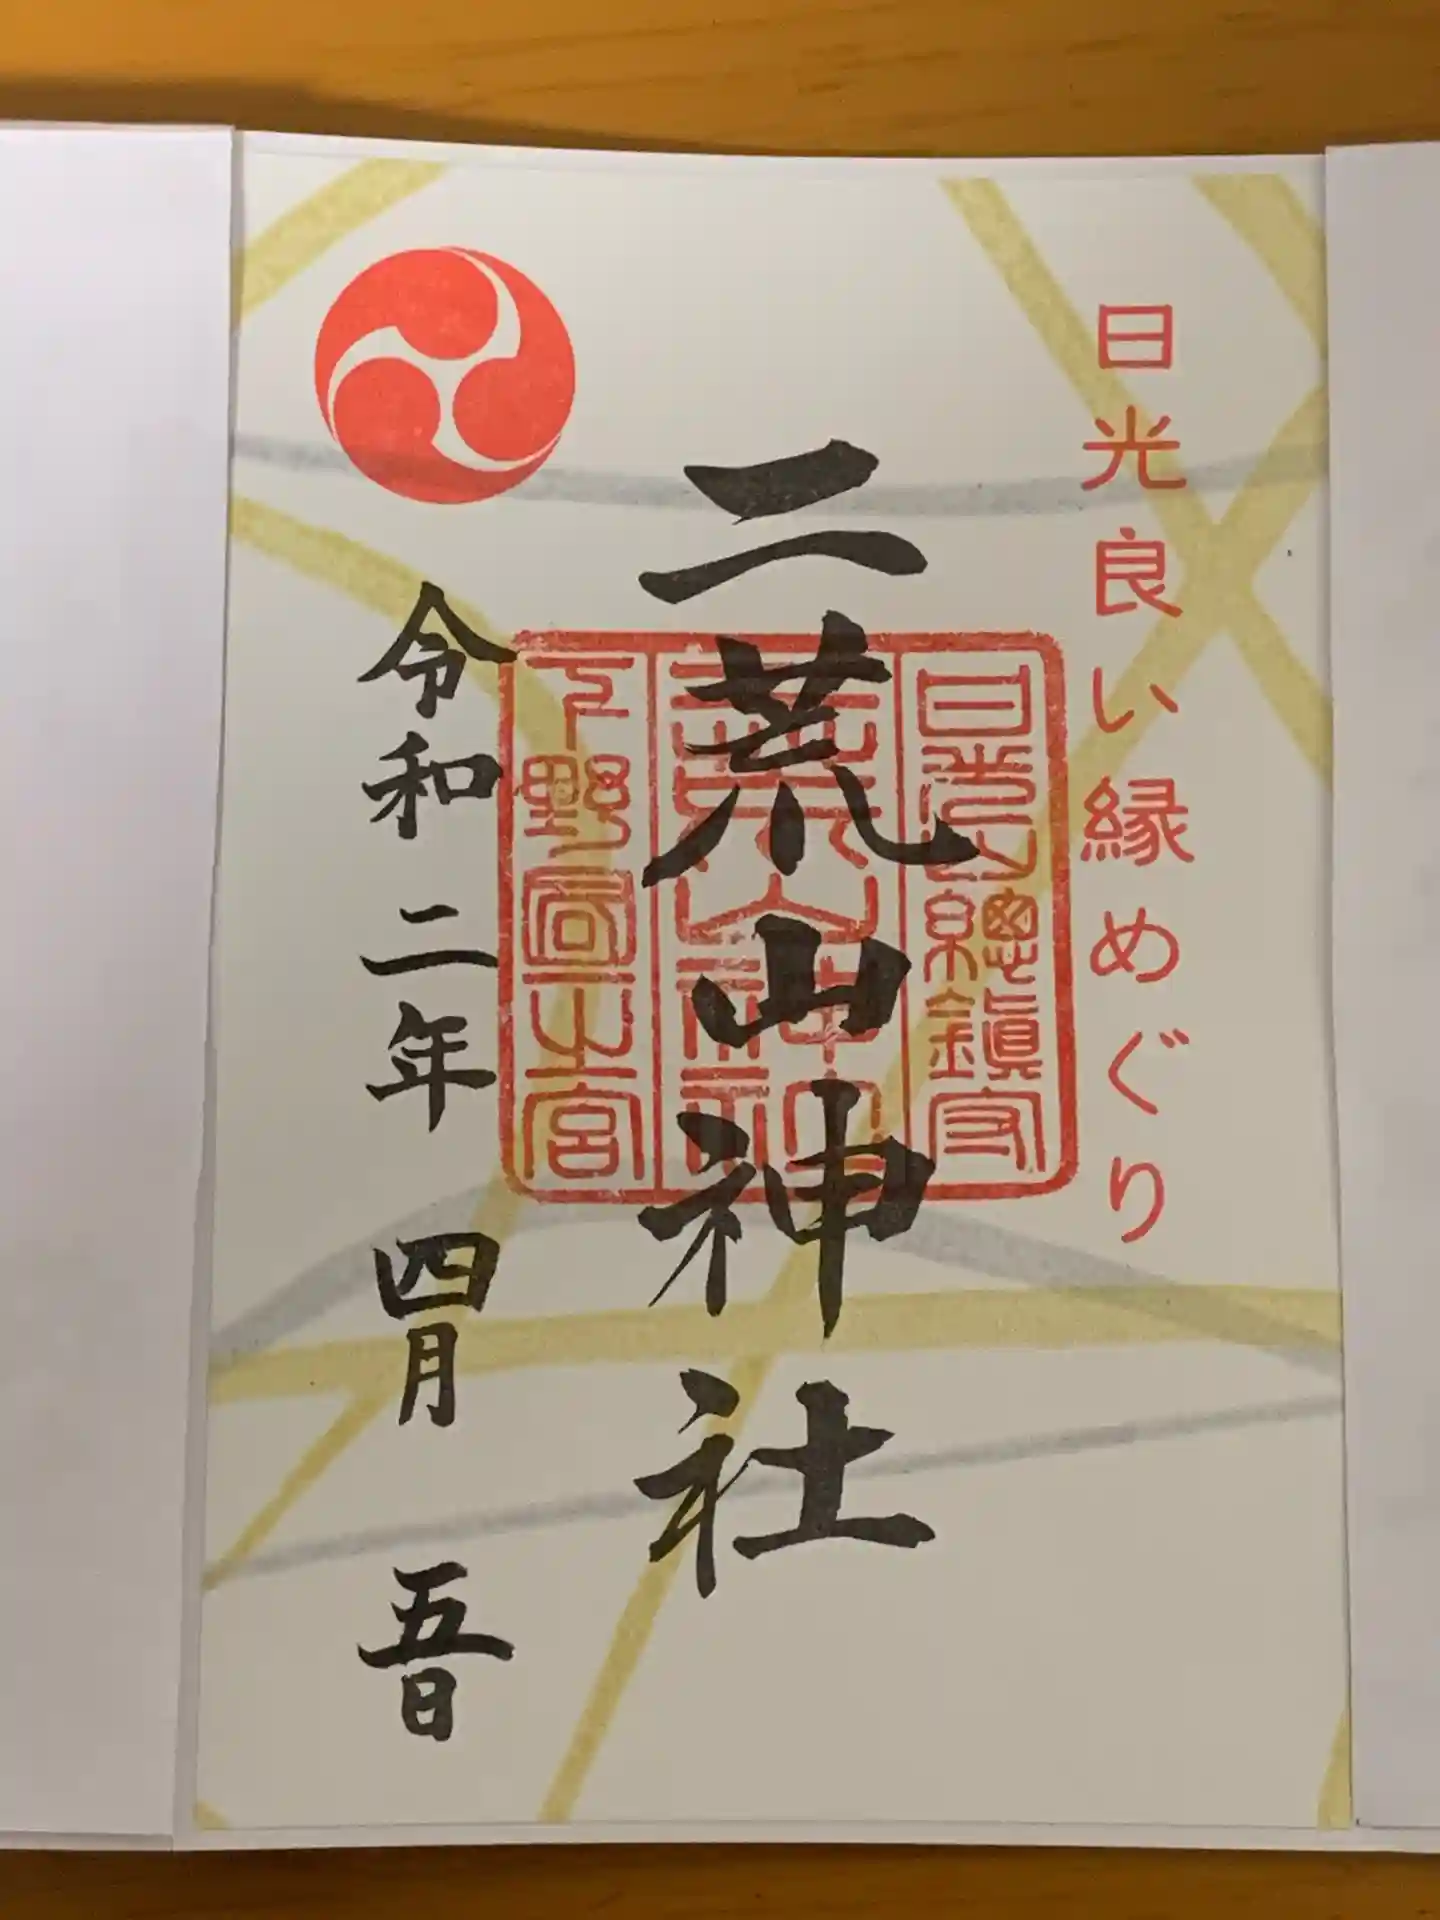 日光良い縁めぐり
二荒山神社
日光山總鎮守
二荒山神社
下野國一之宮
令和二年四月五日